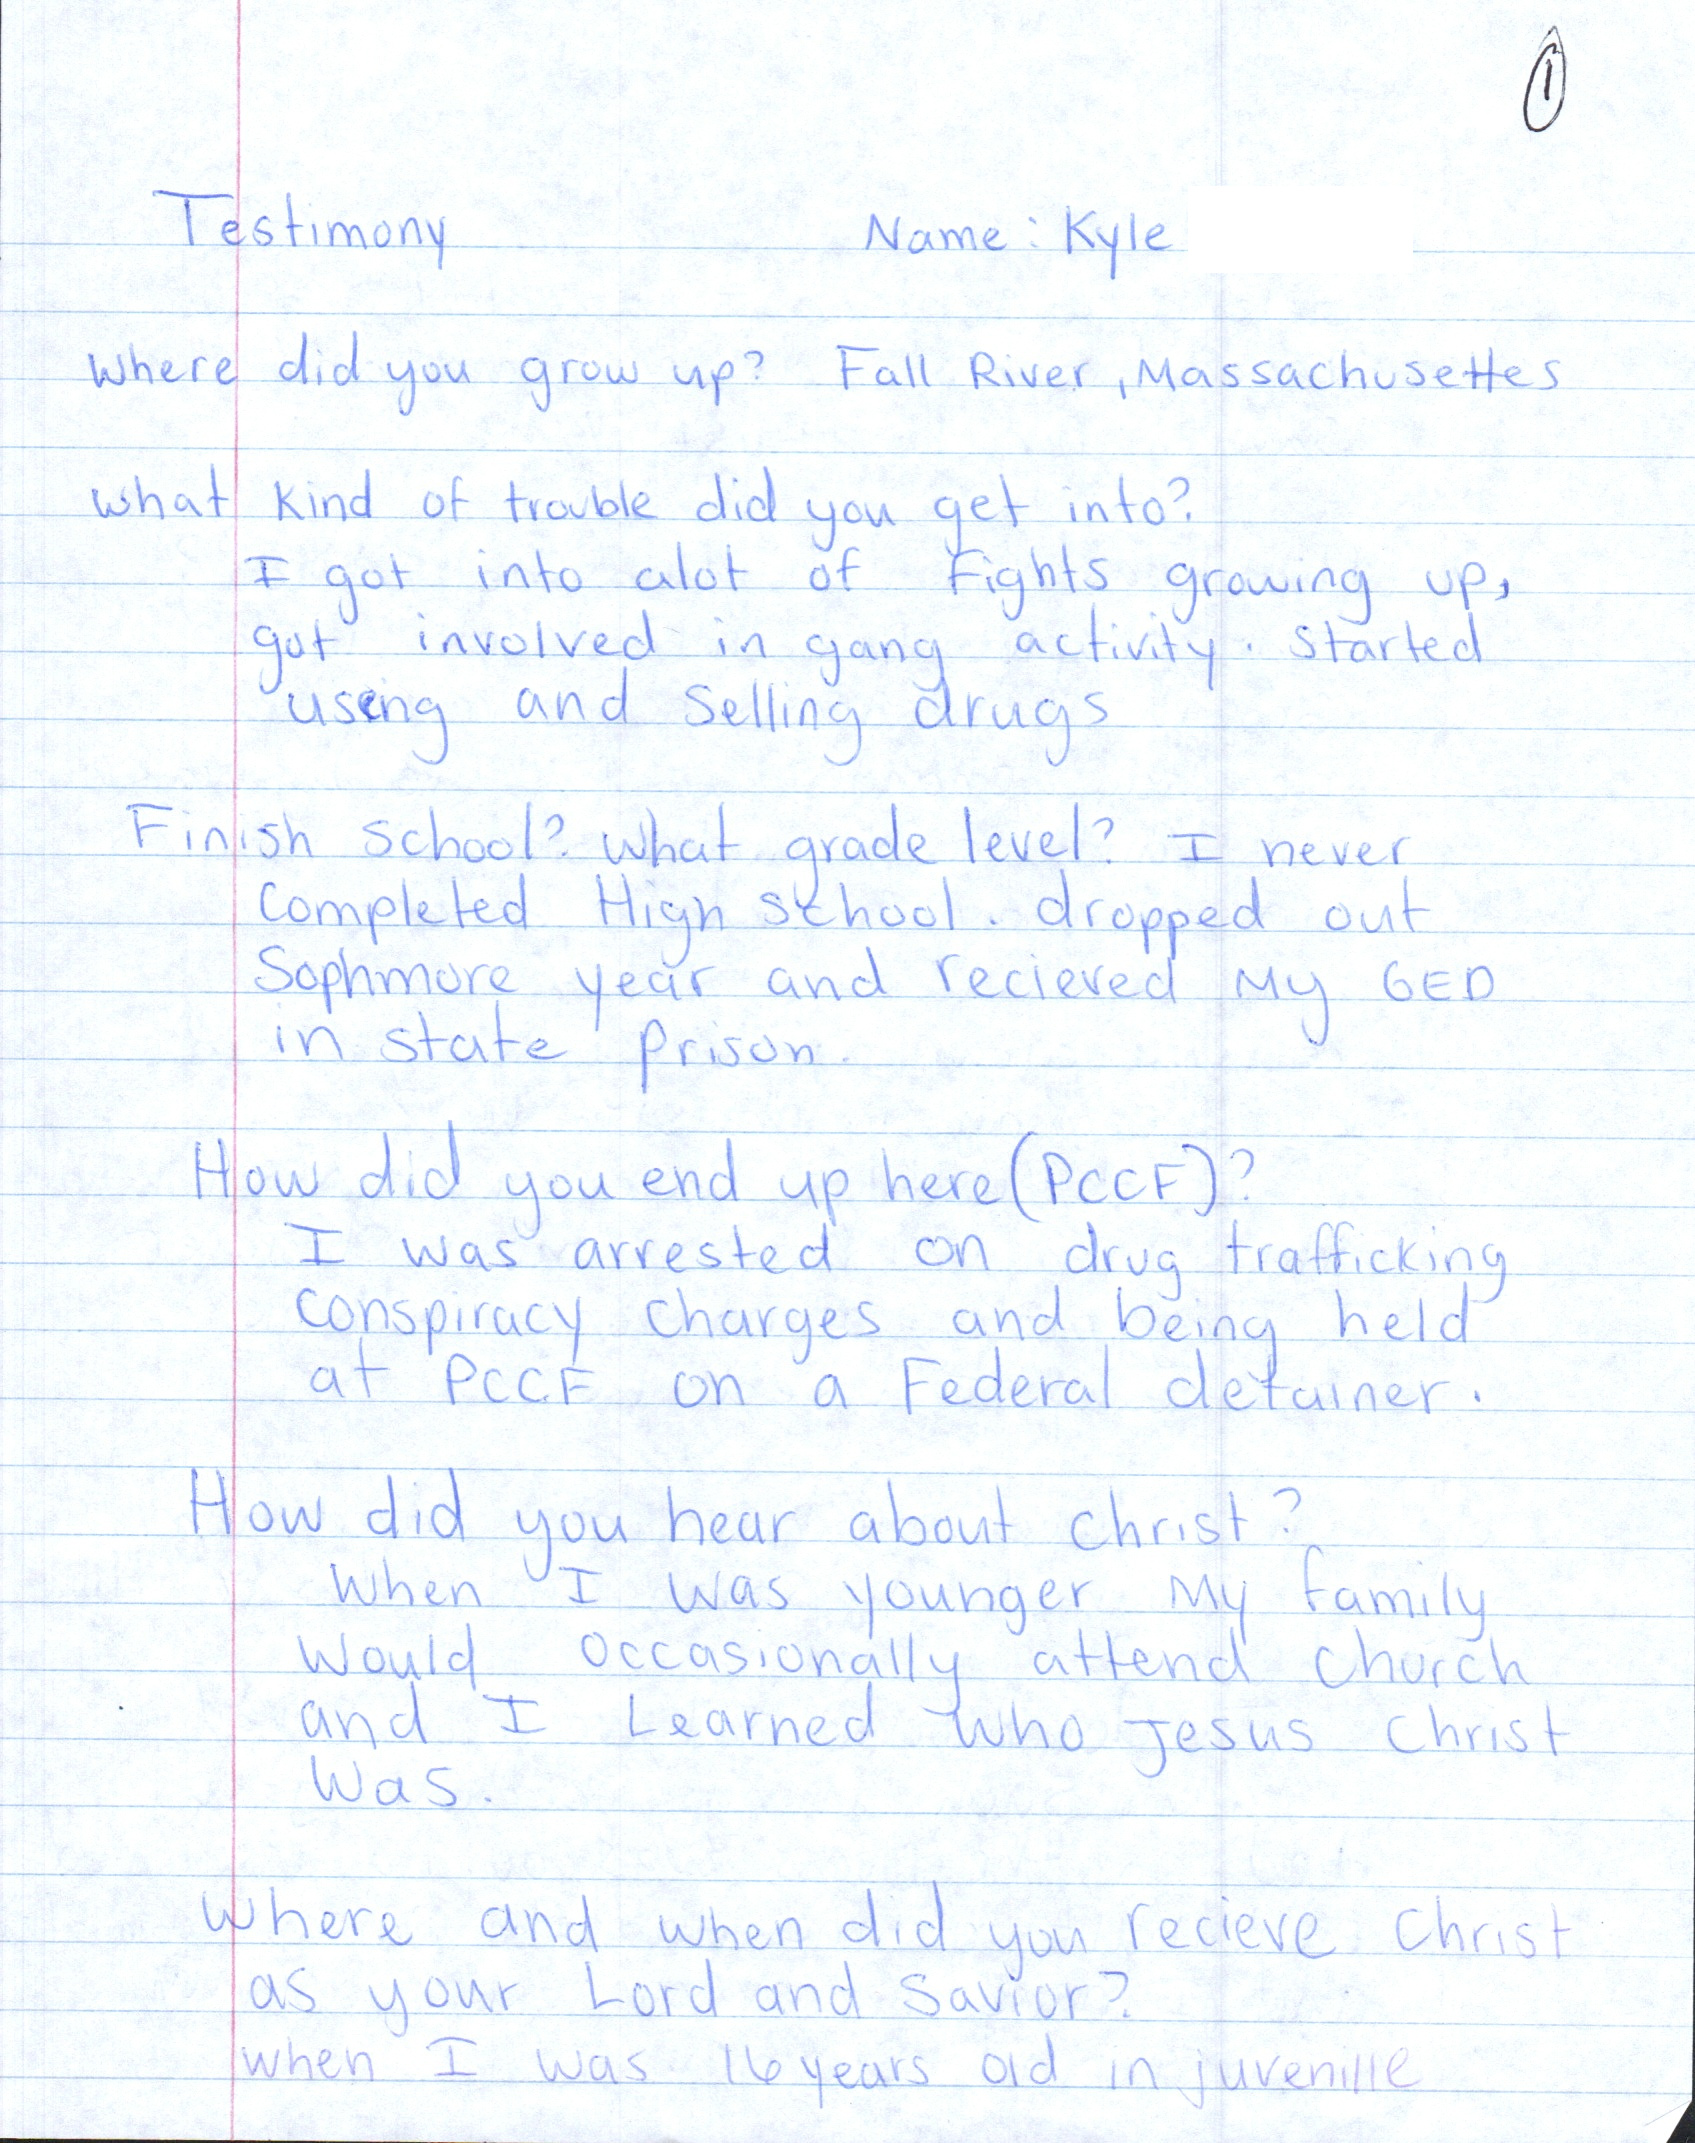 1
Testimony Name: Kyle
where did you grow up? Fall River, Massachusettes
what kind of trouble did you get into?
I got into alot of fights growing up,
got involved in gang activity. started
useing and selling drugs
Finish school? what grade level? I never
completed High school. dropped out
Sophmore year and recieved my GED
in state prison.
How did you end up here (PCCF)?
I was arrested on drug trafficking
conspiracy charges and being held
at PCCF on a Federal detainer.
How did you hear about christ?
When I was younger my family
would occasionally attend church
and I Learned who Jesus christ
was.
where and when did you recieve christ
as your Lord and savior?
when I was 16 years old in juvenille